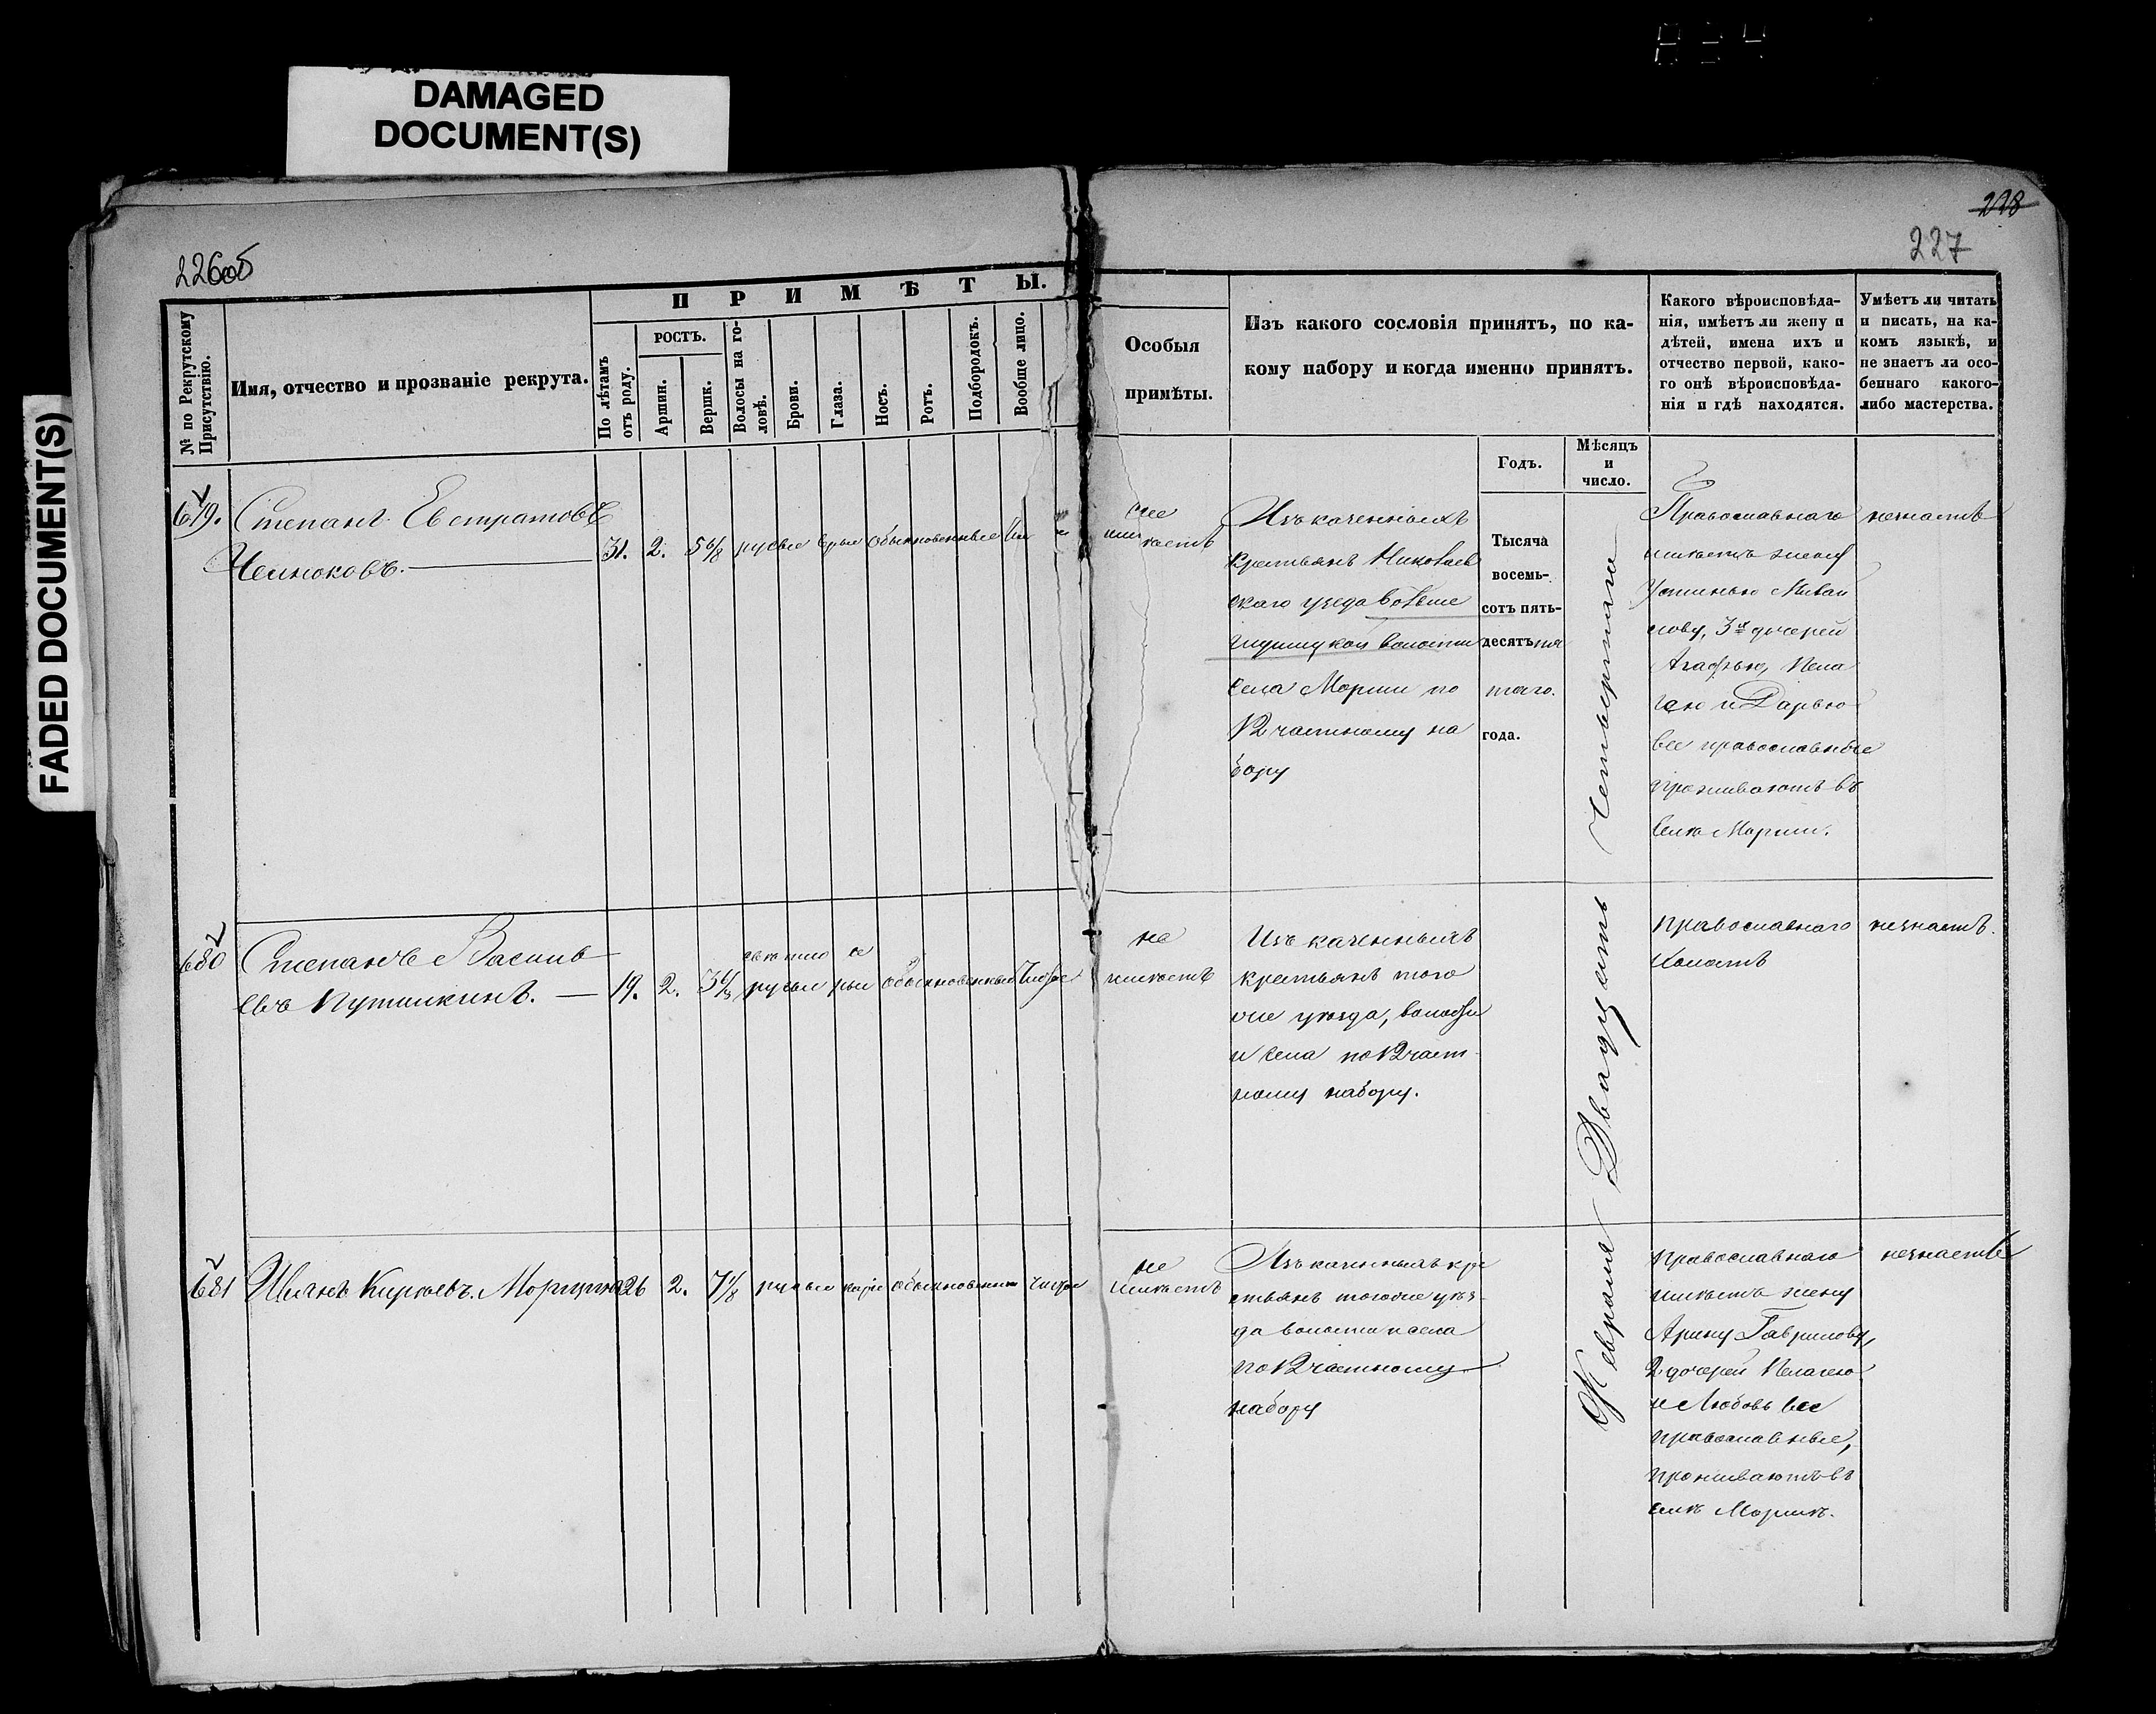 DAMAGED
DOCUMENT(S)
FADED DOCUMENT(S)
226об
228
227
№ по Рекрутскому
Присутствію.
Имя, отчество и прозваніе рекрута.
ПРИМѢТЫ.
По лѣтамъ
отъ роду.
РОСТЪ.
Аршин.
Вершк.
Волосы на го-
ловѣ.
Брови.
Глаза.
Носъ.
Ротъ.
Подбородокъ.
Вообще лицо.
Особыя
примѣты.
Изъ какого сословія принятъ, по ка-
кому набору и когда именно принятъ.
Годъ.
Мѣсяцъ
и
число.
Какого вѣроисповѣда-
нія, имѣетъ ли жену и
дѣтей, имена ихъ и
отчество первой, како-
го онѣ вѣроисповѣда-
нія и гдѣ находятся.
Умѣетъ ли читать
и писать, на ка-
комъ языкѣ, и
не знаетъ ли осо-
беннаго какого-
либо мастерства.
679.
Степанъ Евстратовъ
Челноковъ.
31. 2. 5 6/8 русые серые обыкновенные
не
имѣетъ
Изъ казенныхъ
крестьянъ Николаев
скаго уѣзда
волости
села Морши по
12 частному на
бору
Тысяча
восемь-
сотъ пять-
десятъ пя
таго.
года.
Февраля Двадцать Четвертаго
Православнаго
имѣетъ жену
Устинью
3х дочерей
Агафью, Пела
гею и Дарью
все православные
проживаютъ въ
селѣ Морши.
незнаетъ
680
Степанъ Василь
евъ Путилкинъ.
19. 2. 3 4/8 светло русые се рые обыкновенный чистое
не
имѣетъ
Изъ казенныхъ
крестьянъ того
же уѣзда, волости
и села по 12 част
ному набору.
Православнаго
Холостъ
незнаетъ.
681
Иванъ Киреевъ. Моргунов 26 2. 7 1/8 русые каріе обыкновенные чистое
не
имѣетъ
Изъ казенныхъ кре
стьянъ тогоже уѣз-
да волости и села
по 12 частному
набору
Православнаго
имѣетъ жену
Арину Гаврилову,
2 дочерей Пелагею
и Любовь все
православные,
проживаютъ въ
селѣ Моршѣ.
незнаетъ